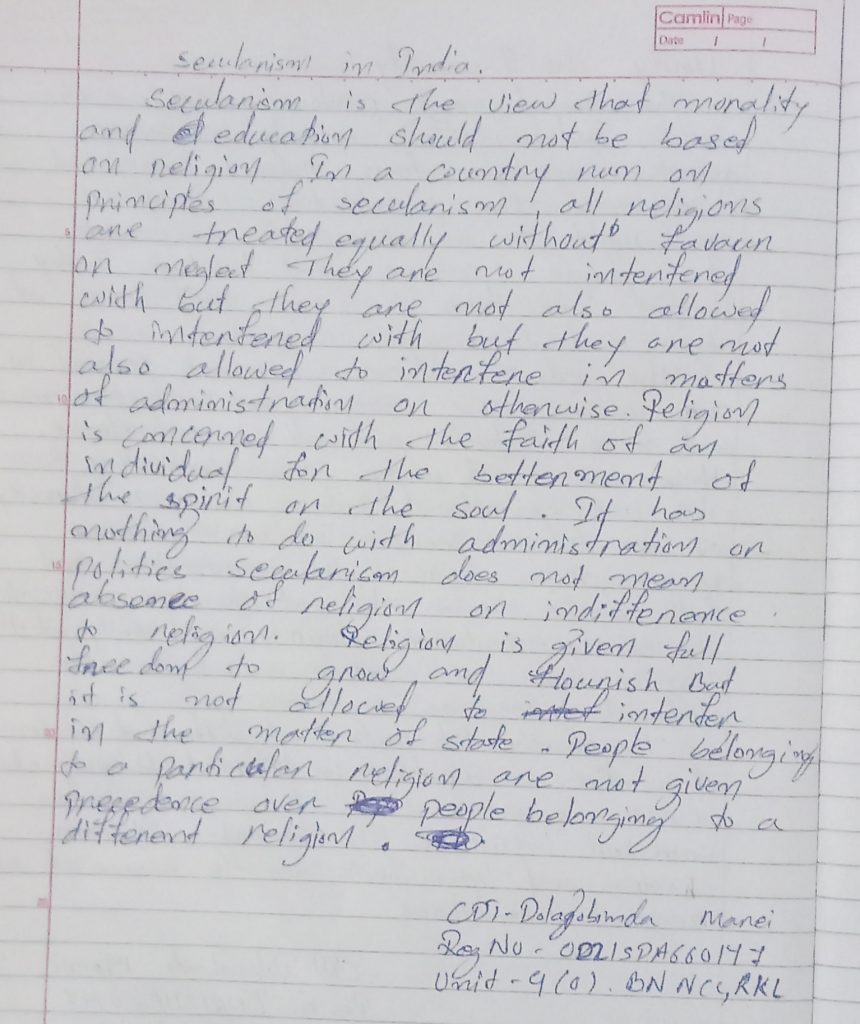 Camlin Page
Date / /
Secularism in India.
Secularism is the view that morality
and education should not be based
on religion In a country run on
principles of secularism, all religions
are treated equally without favaur
or neglect They are not interfered
with but they are not also allowed
to interfered with but they are not
also allowed to interfere in matters
of administration or otherwise. Religion
is concerned with the faith of an
individual for the betterment of
the spirit or the soul. It has
nothing to do with administration or
politics Secularism does not mean
absence of religion or indifference
to religion. Religion is given full
freedom to grow and flourish But
it is not allowed to interfer
in the matter of state. People belonging
to a particular religion are not given
precedence over people belonging to a
different religion.
CDT- Dolagobinda Manei
Reg No - OD21SDA660147
Unit - 9 (O). BN NCC, RKL